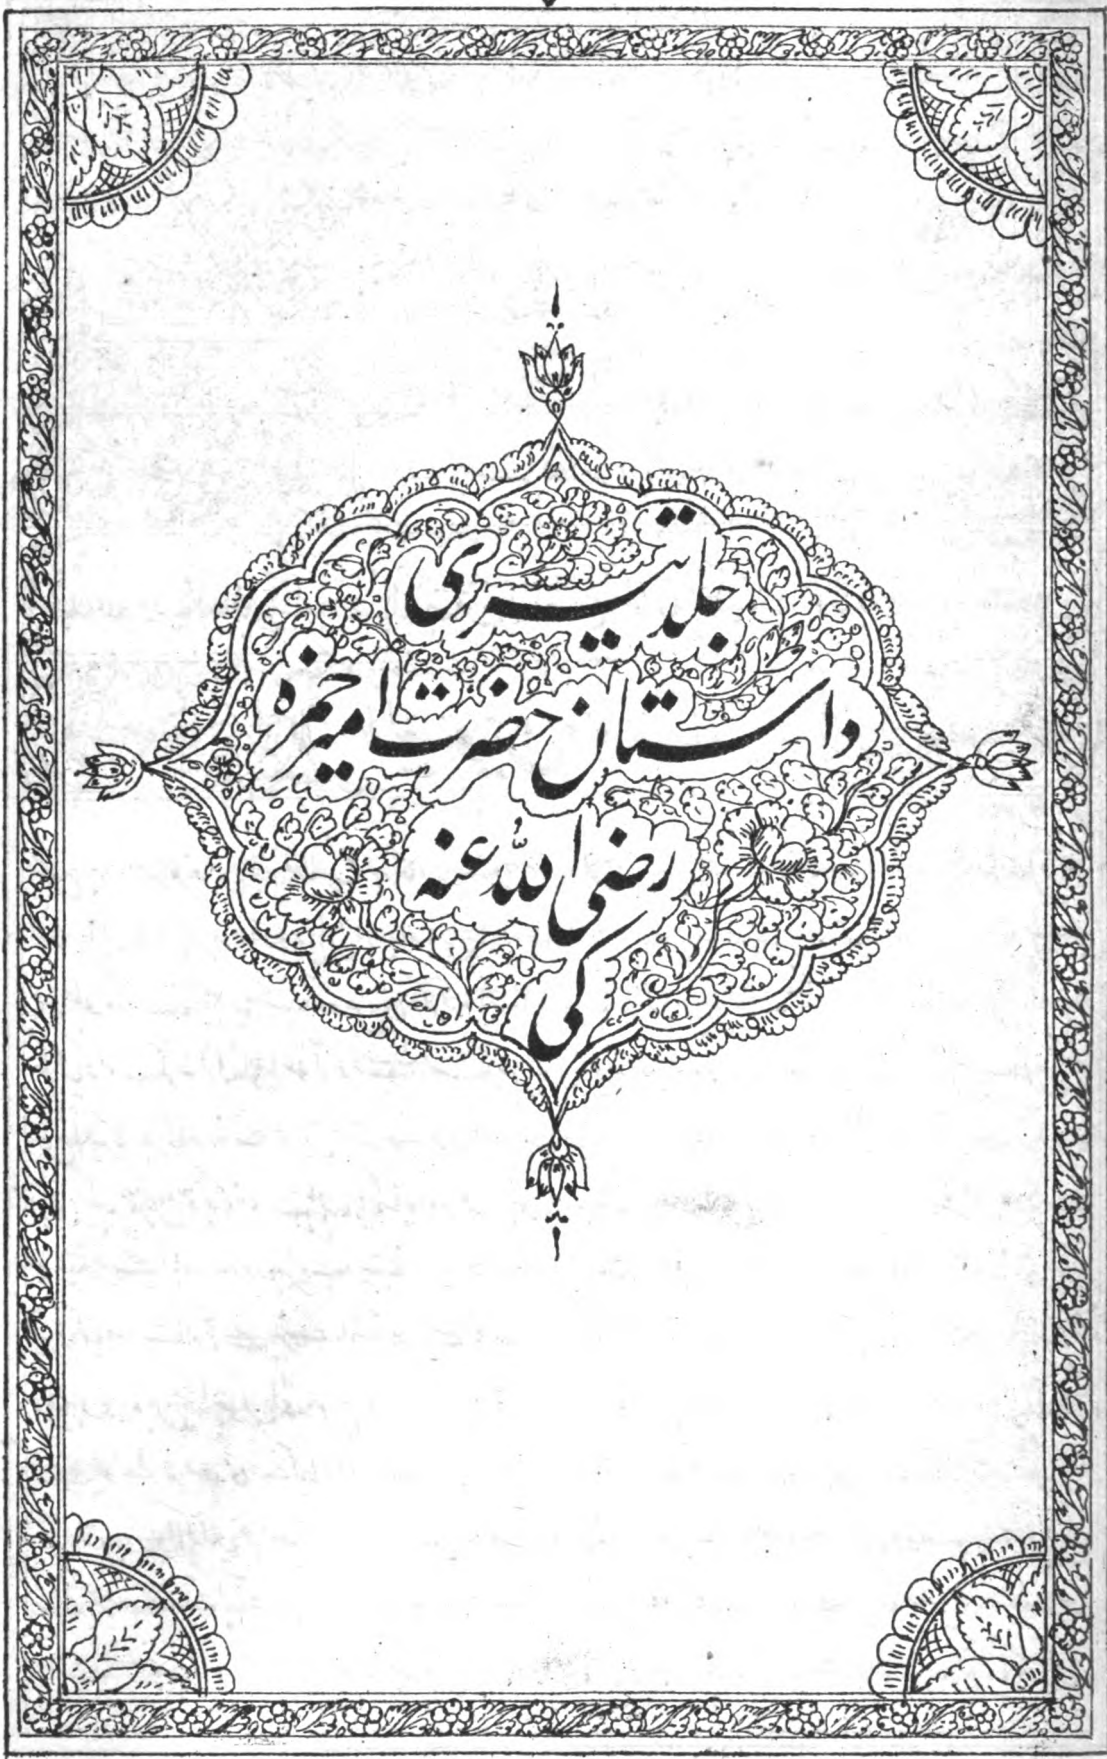 جلد تیسری
داستان حضرت امیر حمزہ
رضی اللہ عنہ
کی